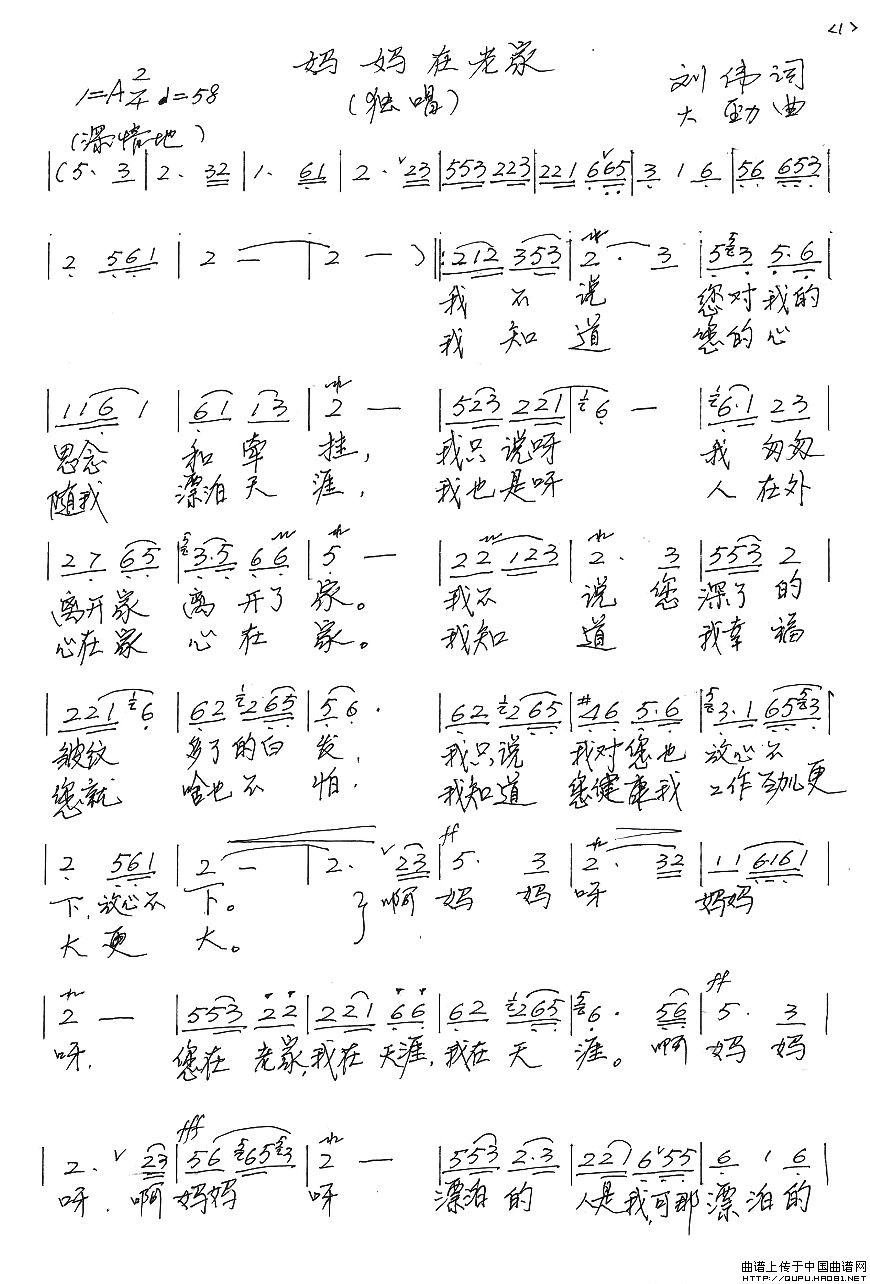 <1>
妈妈在老家
1=A 2/4 ♩=58
(独唱)
刘伟词
大勁曲
(深情地)
|(5. 3|2. 32|1. 61|2. ∨23|553 223|221 6∨65|3 1 6|56 653|
|2 561|2 —|2 — )‖:212 353|2. 3|5 3 5.6|
我 不 说 您对我的
我 知 道 您的心
|116 1|61 13|2 —|523 221|6 —|6.1 23|
思念 和牵 挂, 我只说呀 我匆匆
随我 漂泊天 涯, 我也是呀 人在外
|27 65|3.5 66|5 —|22 123|2. 3|553 2|
离开家 离开了 家。 我不 说 您 深了的
心在家 心在 家。 我知 道 我幸福
|221 6|62 265|5 6.|62 265|#46 5.6|3.1 653|
皱纹 多了的白 发, 我只说 我对您也 放心不
您就 啥也不 怕. 我知道 您健康我 工作劲儿更
|2 561|2 —|2. ∨23|ff 5. 3|2. 32|11 6161|
下,放心不 下。 啊 妈 妈 呀 妈妈
大 更 大。
|2 —|553 22|221 66|62 265|6. 56|ff 5. 3|
呀. 您在 老家,我在 天涯,我在 天 涯。 啊 妈 妈
|2. ∨ 23|fff 56 653|2 —|553 2.3|221 6∨55|6 1 6|
呀. 啊 妈妈 呀 漂泊的 人是我,可那 漂泊的
曲谱上传于中国曲谱网
http://QUPU.HAO81.NET